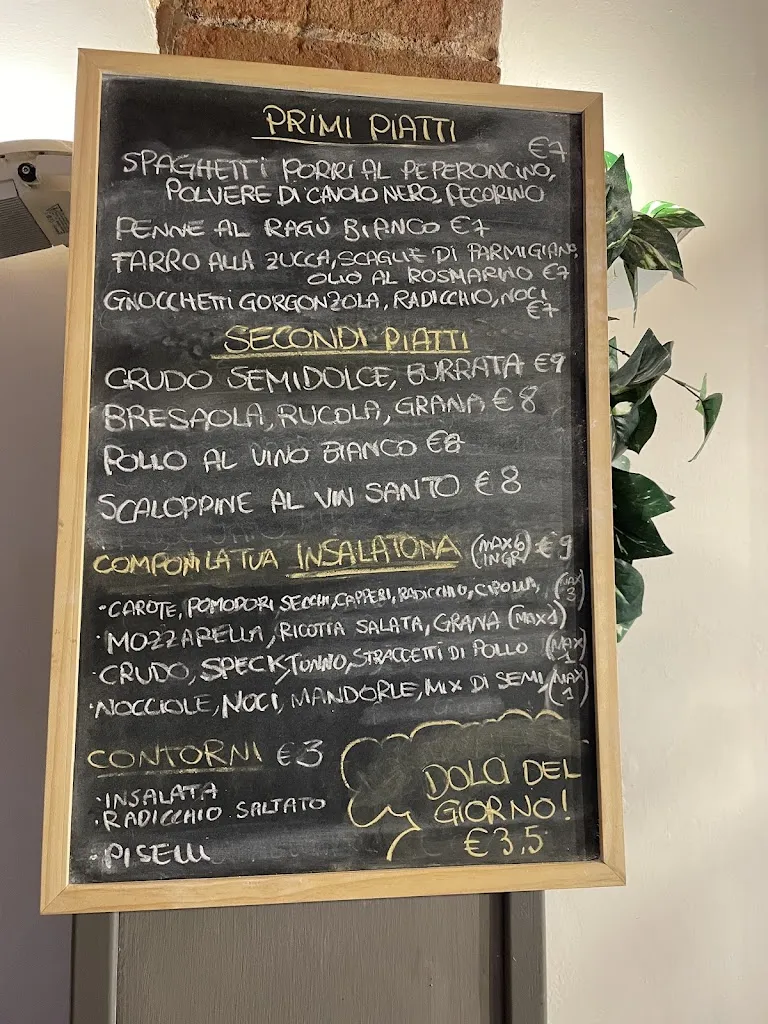 PRIMI PIATTI
SPAGHETTI PORRI AL PEPERONCINO, €7
POLVERE DI CAVOLO NERO, PECORINO
PENNE AL RAGÙ BIANCO €7
FARRO ALLA ZUCCA, SCAGLIE DI PARMIGIANO,
OLIO AL ROSMARINO €7
GNOCCHETTI GORGONZOLA, RADICCHIO, NOCI
€7
SECONDI PIATTI
CRUDO SEMIDOLCE, BURRATA €9
BRESAOLA, RUCOLA, GRANA €8
POLLO AL VINO BIANCO €8
SCALOPPINE AL VIN SANTO €8
COMPONI LA TUA INSALATONA (MAX 6 INGR) €9
•CAROTE, POMODORI SECCHI, CAPPERI, RADICCHIO, CIPOLLA, (MAX 3)
•MOZZARELLA, RICOTTA SALATA, GRANA (MAX 1)
•CRUDO, SPECK, TONNO, STRACCETTI DI POLLO (MAX 1)
•NOCCIOLE, NOCI, MANDORLE, MIX DI SEMI (MAX 1)
CONTORNI €3
•INSALATA
•RADICCHIO SALTATO
•PISELLI
DOLCI DEL
GIORNO!
€3,5